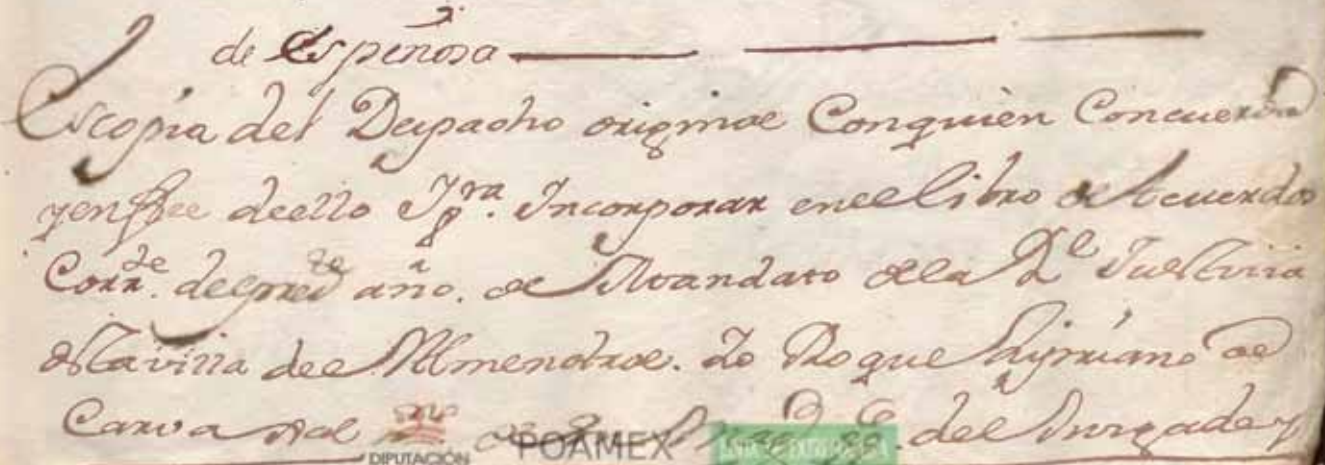 de Espinosa
Es copia del Despacho original Conquien Concuerda
yenfee deello Ypra. Incorporar enel Libro de Acuerdos
Corrte. del presete año. de Mandato dela Rl Justicia
dela villa del Almendral. Yo Roque Cypriano de
Carvajal del Juzgado y
DIPUTACIÓN POAMEX